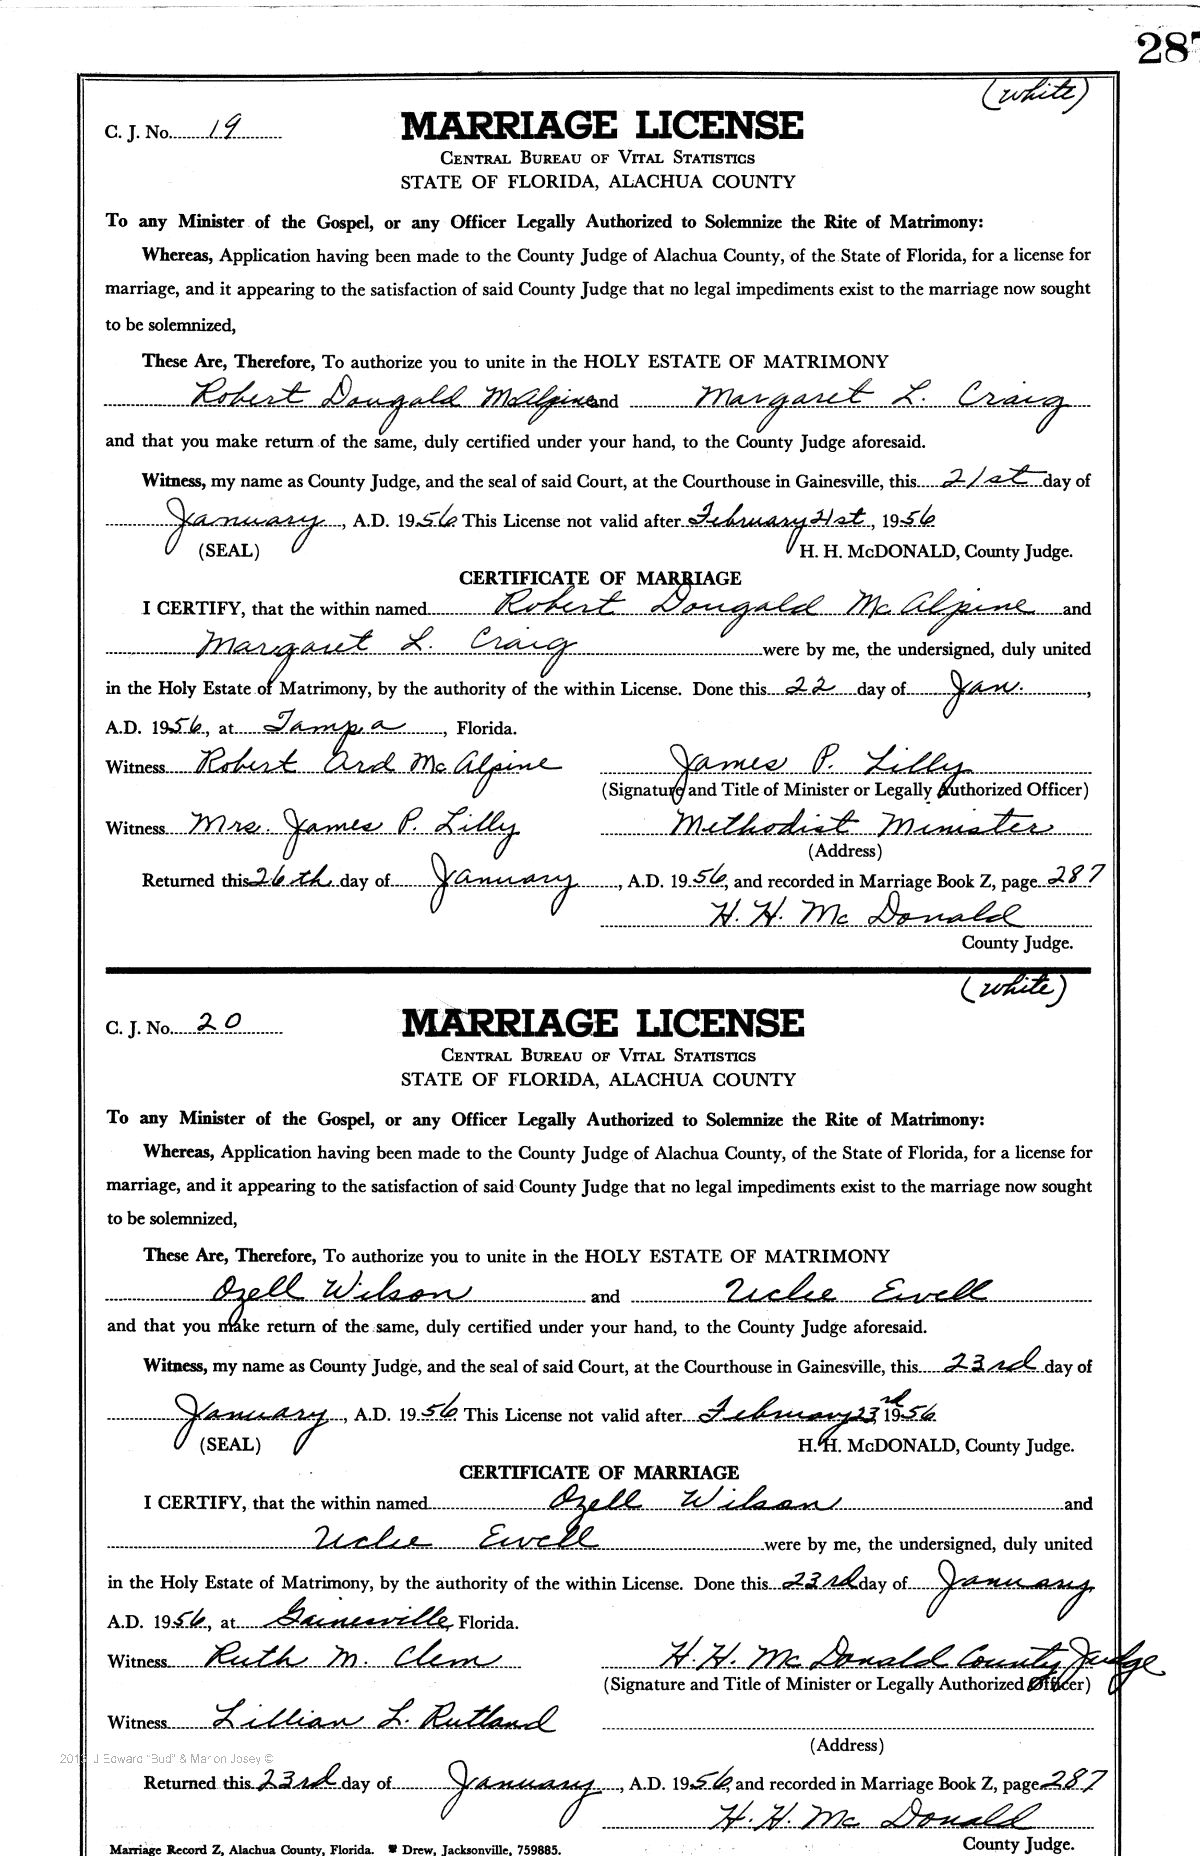 287
(white)
C. J. No. 19
MARRIAGE LICENSE
CENTRAL BUREAU OF VITAL STATISTICS
STATE OF FLORIDA, ALACHUA COUNTY
To any Minister of the Gospel, or any Officer Legally Authorized to Solemnize the Rite of Matrimony:
Whereas, Application having been made to the County Judge of Alachua County, of the State of Florida, for a license for
marriage, and it appearing to the satisfaction of said County Judge that no legal impediments exist to the marriage now sought
to be solemnized,
These Are, Therefore, To authorize you to unite in the HOLY ESTATE OF MATRIMONY
Robert Dougald McAlpine and Margaret L. Craig
and that you make return of the same, duly certified under your hand, to the County Judge aforesaid.
Witness, my name as County Judge, and the seal of said Court, at the Courthouse in Gainesville, this 21st day of
January, A.D. 1956 This License not valid after February 21st, 1956
(SEAL) H. H. McDONALD, County Judge.
CERTIFICATE OF MARRIAGE
I CERTIFY, that the within named Robert Dougald McAlpine and
Margaret L. Craig were by me, the undersigned, duly united
in the Holy Estate of Matrimony, by the authority of the within License. Done this 22 day of Jan.,
A.D. 1956, at Tampa, Florida.
Witness Robert Ard McAlpine James P. Lilly
(Signature and Title of Minister or Legally Authorized Officer)
Witness Mrs. James P. Lilly Methodist Minister
(Address)
Returned this 26th day of January, A.D. 1956, and recorded in Marriage Book Z, page 287
H. H. McDonald
County Judge.
(white)
C. J. No. 20
MARRIAGE LICENSE
CENTRAL BUREAU OF VITAL STATISTICS
STATE OF FLORIDA, ALACHUA COUNTY
To any Minister of the Gospel, or any Officer Legally Authorized to Solemnize the Rite of Matrimony:
Whereas, Application having been made to the County Judge of Alachua County, of the State of Florida, for a license for
marriage, and it appearing to the satisfaction of said County Judge that no legal impediments exist to the marriage now sought
to be solemnized,
These Are, Therefore, To authorize you to unite in the HOLY ESTATE OF MATRIMONY
Ozell Wilson and Uclee Ewell
and that you make return of the same, duly certified under your hand, to the County Judge aforesaid.
Witness, my name as County Judge, and the seal of said Court, at the Courthouse in Gainesville, this 23rd day of
January, A.D. 1956 This License not valid after February 23rd, 1956
(SEAL) H. H. McDONALD, County Judge.
CERTIFICATE OF MARRIAGE
I CERTIFY, that the within named Ozell Wilson and
Uclee Ewell were by me, the undersigned, duly united
in the Holy Estate of Matrimony, by the authority of the within License. Done this 23rd day of January,
A.D. 1956, at Gainesville, Florida.
Witness Ruth M. Clem H. H. McDonald County Judge
(Signature and Title of Minister or Legally Authorized Officer)
Witness Lillian L. Rutland
(Address)
J Edward "Bud" & Marion Josey ©
Returned this 23rd day of January, A.D. 1956, and recorded in Marriage Book Z, page 287
H. H. McDonald
County Judge.
Marriage Record Z, Alachua County, Florida. Drew, Jacksonville, 759885.